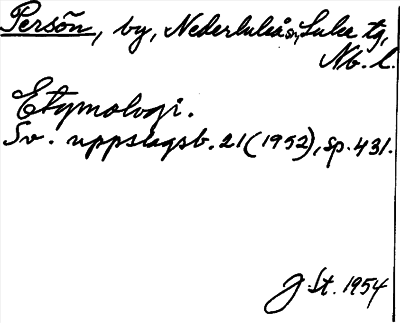 Persön, by, Nederluleå sn, Lule tg,
Nb. l.
Etymologi.
Sv. uppslagsb. 21 (1952), sp. 431.
J St. 1954